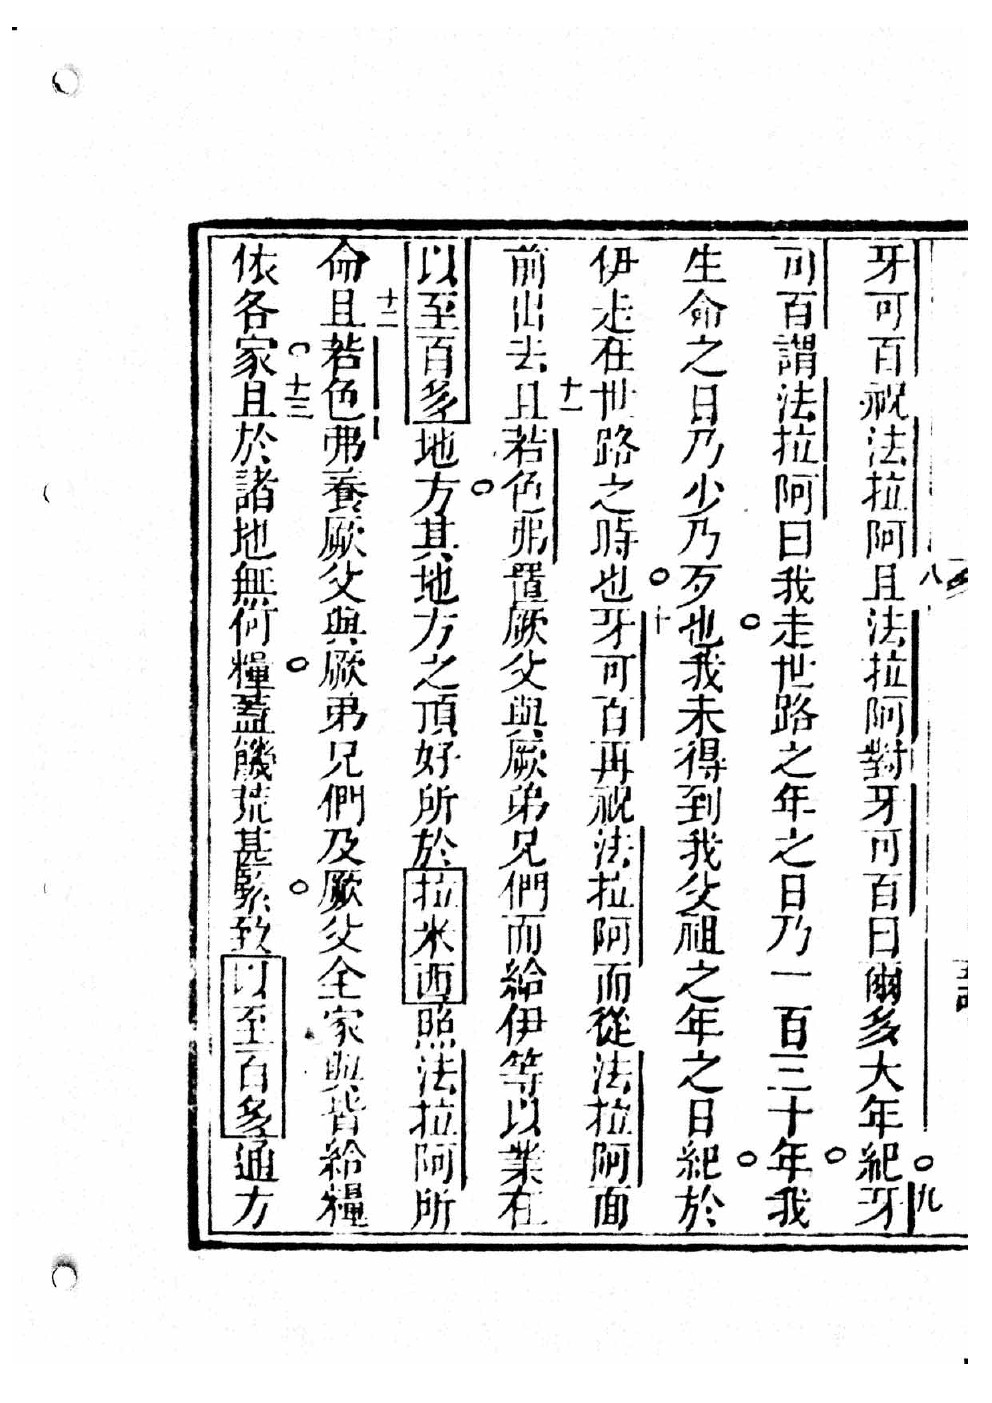 牙可百祝法拉阿且法拉阿對牙可百曰爾多大年紀牙
八
九
可百謂法拉阿曰我走世路之年之日乃一百三十年我
生命之日乃少乃歹也我未得到我父祖之年之日紀於
伊走在世路之時也牙可百再祝法拉阿而從法拉阿面
十
前出去且若色弗置厥父與厥弟兄們而給伊等以業在
十一
以至百多地方其地方之頂好所於拉米西照法拉阿所
命且若色弗養厥父與厥弟兄們及厥父全家與皆給糧
十二
依各家且於諸地無何糧蓋饑荒甚緊致以至百多通方
十三